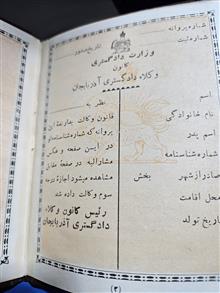 شماره پروانه
شماره ثبت
تاریخ صدور
وزارت دادگستری
کانون
وکلاء دادگستری آذربایجان
اسم
نام خانوادگی
اسم پدر
شماره شناسنامه
صادر از شهر بخش
محل اقامت
تاریخ تولد
نظر به
قانون وکالت بدارنده این
پروانه که شماره شناسنامه
در این صفحه و عکس
مشارالیه در صفحه مقابل
مشاهده میشود اجازه درجه
سوم وکالت داده شد
رئیس کانون وکلاء
دادگستری آذربایجان
(۳)